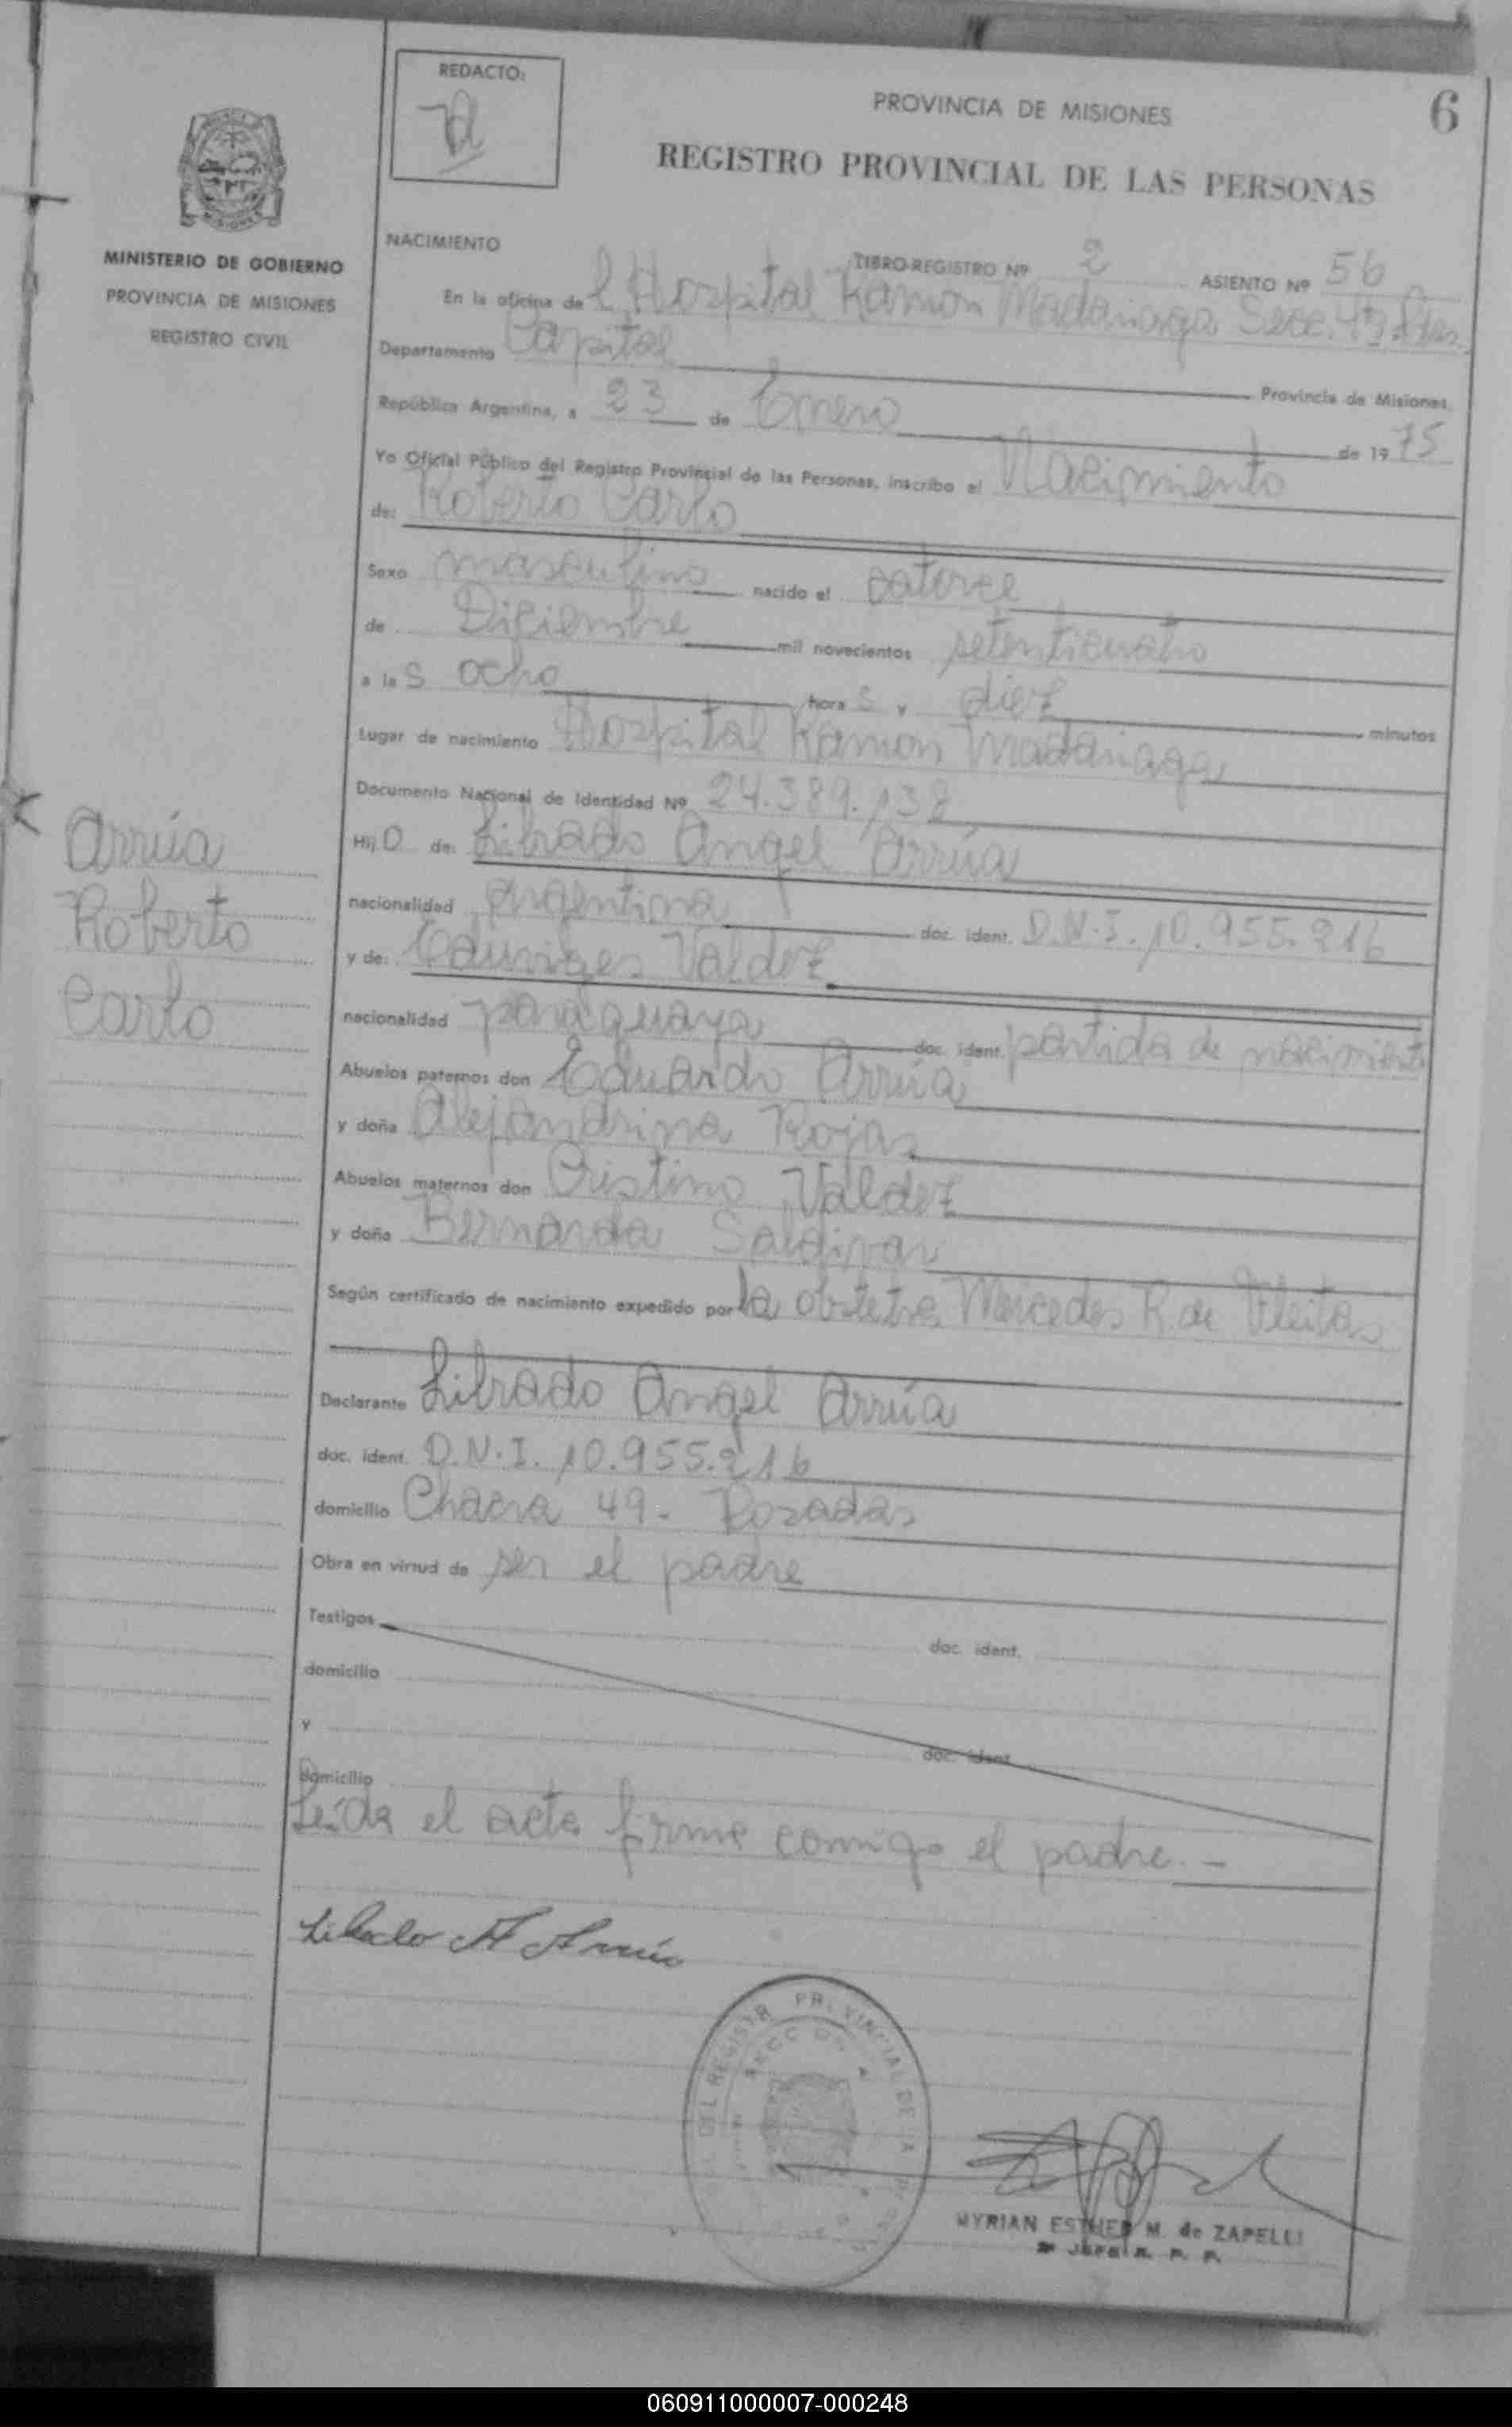 REDACTO:
PROVINCIA DE MISIONES
6
REGISTRO PROVINCIAL DE LAS PERSONAS
MINISTERIO DE GOBIERNO
PROVINCIA DE MISIONES
REGISTRO CIVIL
NACIMIENTO
LIBRO-REGISTRO Nº 2 ASIENTO Nº 56
En la oficina del Hospital Ramon Madariaga Secc. 4ª
Departamento Capital Provincia de Misiones,
República Argentina, a 23 de Enero de 1975
Yo Oficial Público del Registro Provincial de las Personas, inscribo el Nacimiento
de: Roberto Carlo
Sexo masculino nacido el catorce
de Diciembre mil novecientos setenticuatro
a las ocho horas y diez minutos
Lugar de nacimiento Hospital Ramon Madariaga
Documento Nacional de Identidad Nº 24.389.138
Hijo de: Librado Angel Arrúa
nacionalidad argentina doc. ident. D.N.I. 10.955.216
y de: Eduviges Valdez
nacionalidad paraguaya doc. ident. partida de nacimiento
Abuelos paternos don Eduardo Arrúa
y doña Alejandrina Rojas
Abuelos maternos don Cristino Valdez
y doña Bernarda Saldivar
Según certificado de nacimiento expedido por la obstetra Mercedes R. de Fleitas
Declarante Librado Angel Arrúa
doc. ident. D.N.I. 10.955.216
domicilio Chacra 49- Posadas
Obra en virtud de ser el padre
Testigos doc. ident.
domicilio
y doc. ident.
domicilio
Leída el acta firma conmigo el padre.-
Librado A Arrúa
Arrúa
Roberto
Carlo
DEL REGISTR PROVINCIAL DE
MYRIAN ESTHER M. de ZAPELLI
060911000007-000248